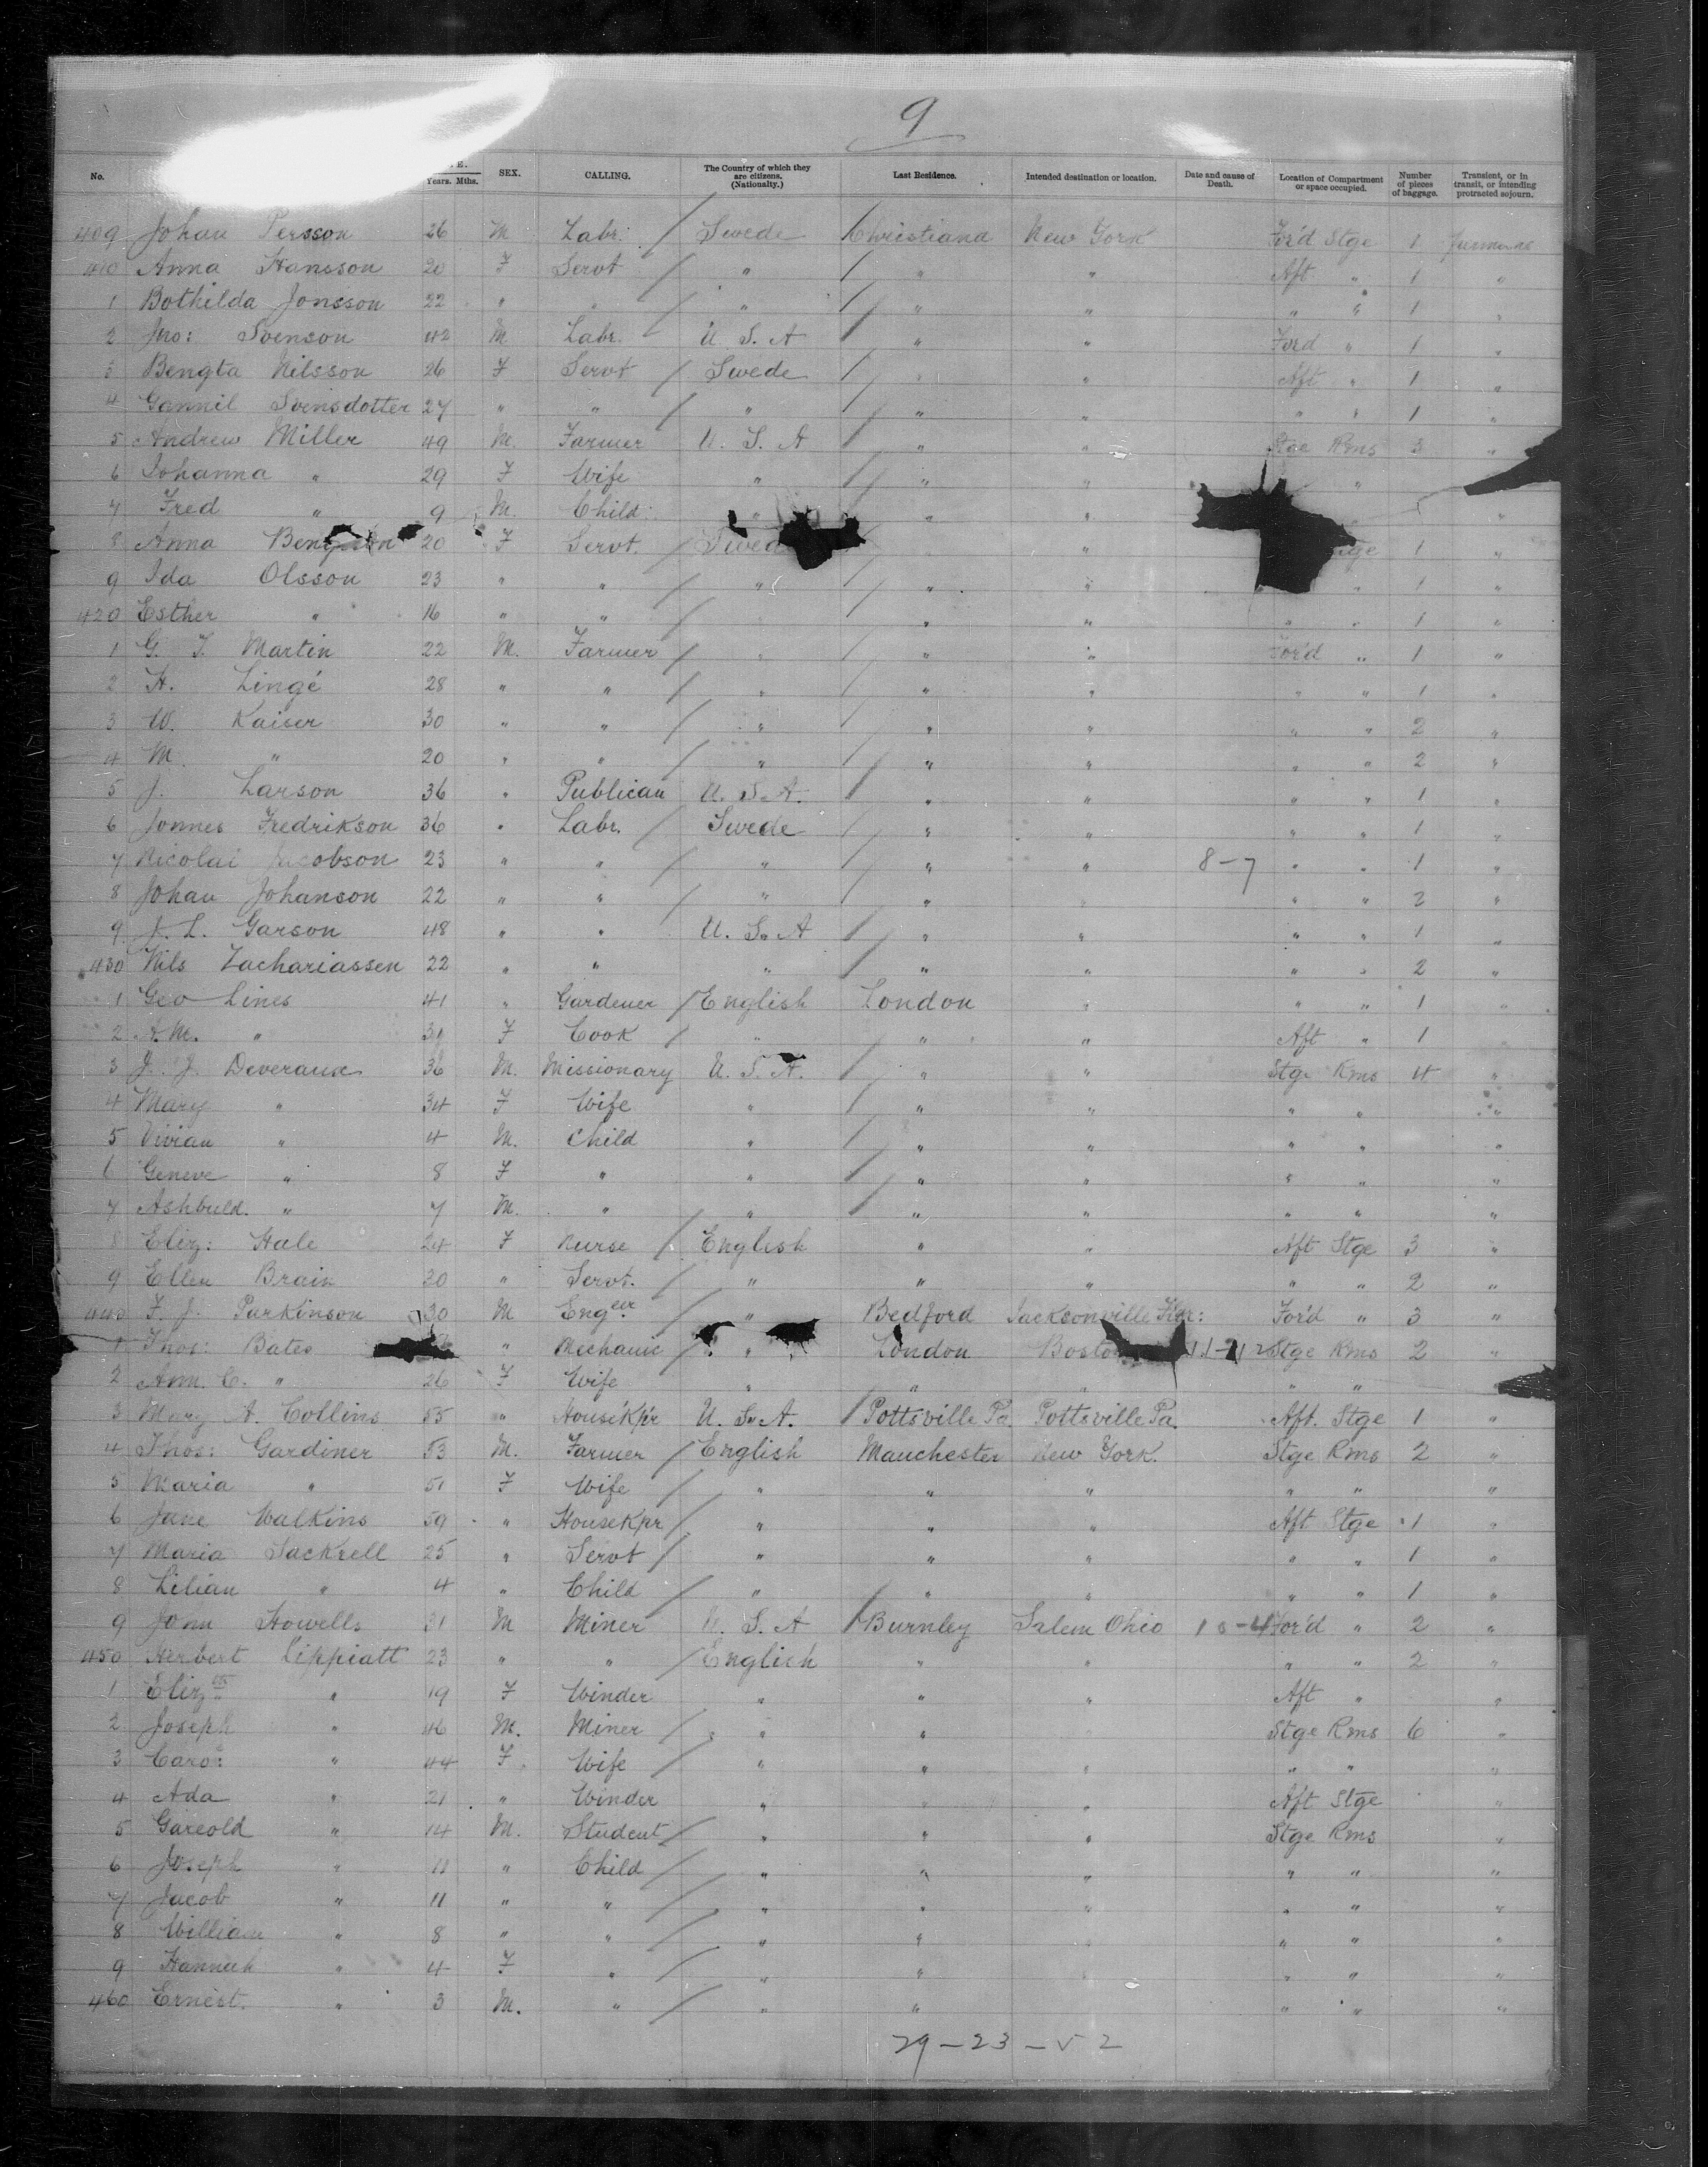 9
No. SEX. CALLING. The Country of which they are citizens. (Nationalty.) Last Residence. Intended destination or location. Date and cause of Death. Location of Compartment or space occupied. Number of pieces of baggage. Transient, or in transit, or intending protracted sojourn.
Years. Mths.
409 Johan Persson 26 M Labr: / Swede / Christiana New York For'd Stge 1
410 Anna Hansson 20 F Servt / " / " " Aft " 1 "
1 Bothilda Jonsson 22 " " / " / " " " " 1 "
2 Jno: Svenson 42 M Labr. U. S. A / " " Ford " 1 "
3 Bengta Nilsson 26 F Servt / Swede / " " Aft " 1 "
4 Gannil Svensdotter 27 " " / " / " " " " 1 "
5 Andrew Miller 49 M. Farmer U. S. A / " " Stge Rms 3 "
6 Johanna " 29 F Wife " / " " "
7 Fred " 9 M. Child " " " "
8 Anna 20 F Servt. / " 1 "
9 Ida Olsson 23 " " / " / " " " 1 "
420 Esther " 16 " " / / " " " " 1 "
1 G. T. Martin 22 M. Farmer / " / " " For'd " 1 "
2 H. Lingé 28 " " / " / " " " " 1 "
3 W. Kaiser 30 " " / " / " " " " 2 "
4 M. " 20 " " / " / " " " " 2 "
5 J. Larson 36 " Publican U. S. A. / " " " " 1 "
6 Jonnes Fredrikson 36 " Labr. / Swede / " " " " 1 "
7 Nicolai Jacobson 23 " " / " / " " 8-7 " " 1 "
8 Johan Johanson 22 " " / " / " " " " 2 "
9 J. L. Garson 48 " " U. S. A / " " " " 1 "
430 Nils Zachariassen 22 " " " " " " " 2 "
1 Geo Lines 41 " Gardener / English London " " " 1 "
2 A.M. " F Cook / " " " Aft " 1
3 J. J. Deveraux 36 M. Missionary U. S. A. / " " Stge Rms 4 "
4 Mary " 34 F Wife " / " " " " "
5 Vivian " 4 M. Child " / " " " " "
6 Geneve " 8 F " " / " " " " "
7 Ashbuld. " 7 M. " " / " " " " "
8 Eliz: Hale 24 F Nurse / English " " Aft Stge 3 "
9 Ellen Brain 30 " Servt. / " " " " " 2 "
440 F. J. Parkinson 30 M Engeer / " Bedford Jacksonville For'd " 3 "
1 Thos: Bates " Mechanic / " London Stge Rms 2 "
2 Ann. C. " 26 F Wife " " " " "
3 Mary A. Collins 55 " House'Kp'r U. S. A. / Pottsville Pa. Pottsville Pa. Aft. Stge 1 "
4 Thos: Gardiner 53 M. Farmer / English Manchester New York. Stge Rms 2 "
5 Maria " 51 F Wife / " " " " " "
6 Jane Walkins 59 " HouseKpr / " " " Aft Stge 1 "
7 Maria Sackrell 25 " Servt / " " " " " 1 "
8 Lilian " 4 " Child / " / " " " " 1 "
9 John Howells 31 M Miner U. S. A / Burnley Salem Ohio For'd " 2 "
450 Herbert Lippiatt 23 " " / English " " " " 2 "
1 Elizth " 19 F Winder " " " Aft " "
2 Joseph " 46 M. Miner / " " Stge Rms 6 "
3 Caro: " 44 F. Wife / " " " " " "
4 Ada " 21 " Winder " " " Aft Stge "
5 Gareold " 14 M. Student / " " " Stge Rms "
6 Joseph " 11 " Child / " " " " " "
7 Jacob " 11 " " / " " " " " "
8 William " 8 " " / " " " " "
9 Hannah " 4 F " / " " " " "
460 Ernest. " 3 M. " / " " " " "
29-23-52